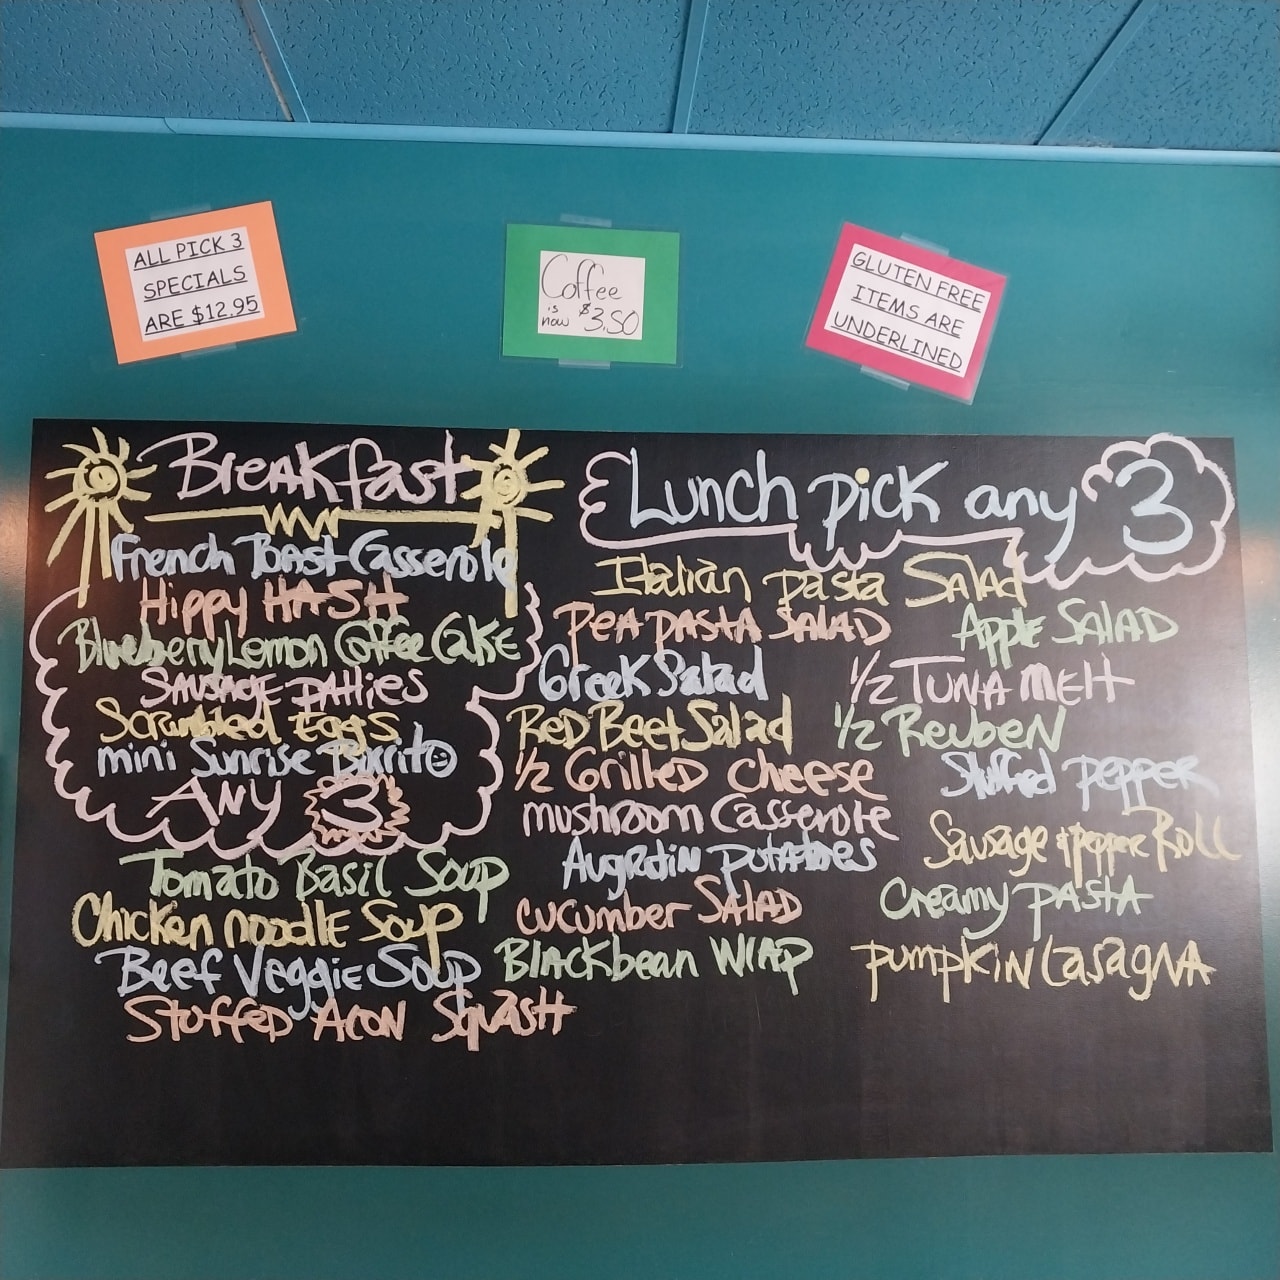 ALL PICK 3
SPECIALS
ARE $12.95
Coffee
is now $3.50
GLUTEN FREE
ITEMS ARE
UNDERLINED
Breakfast
French Toast Casserole
Hippy HASH
Blueberry Lemon Coffee Cake
Sausage patties
Scrambled Eggs
mini Sunrise Burrito
Any 3
Tomato Basil Soup
Chicken noodle Soup
Beef Veggie Soup
Stuffed Acon Squash
Lunch pick any 3
Italian pasta Salad
Pea pasta Salad
Greek Salad
Red Beet Salad
1/2 Grilled Cheese
mushroom Casserole
Augratin potatoes
Cucumber Salad
Blackbean Wrap
Apple Salad
1/2 Tuna melt
1/2 Reuben
Stuffed pepper
Sausage & pepper Roll
Creamy pasta
pumpkin Lasagna